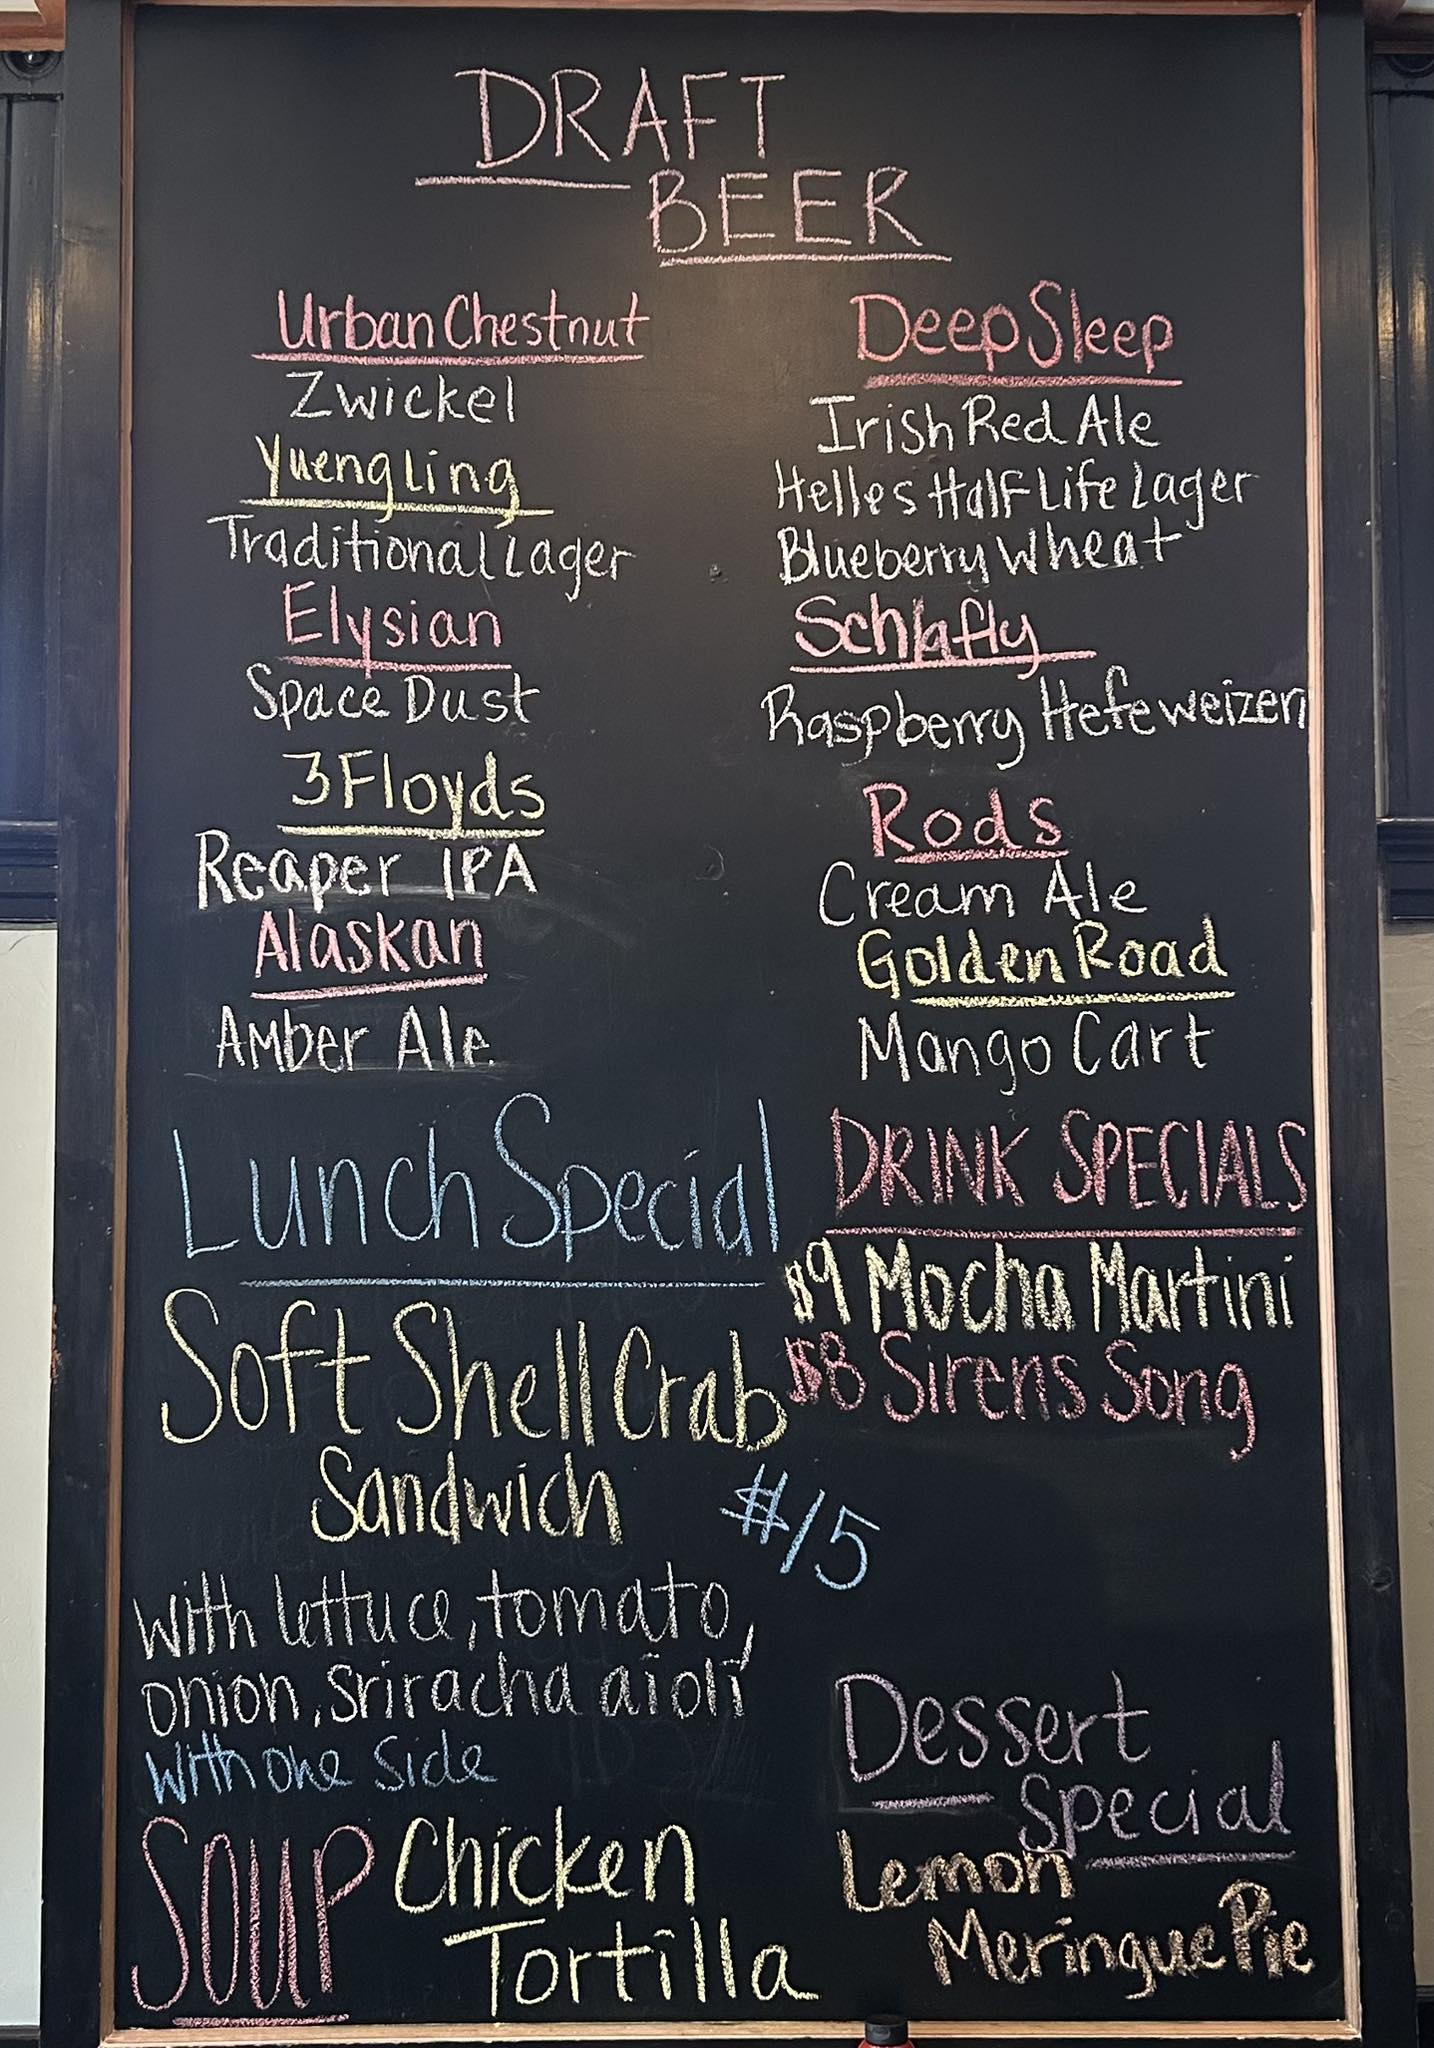 DRAFT
BEER
Urban Chestnut
Zwickel
Yuengling
Traditional Lager
Elysian
Space Dust
3 Floyds
Reaper IPA
Alaskan
Amber Ale
Deep Sleep
Irish Red Ale
Helles Half Life Lager
Blueberry Wheat
Schlafly
Raspberry Hefeweizen
Rods
Cream Ale
Golden Road
Mango Cart
Lunch Special
Soft Shell Crab
Sandwich $15
with lettuce, tomato,
onion, sriracha aioli
with one side
SOUP Chicken
Tortilla
DRINK SPECIALS
$9 Mocha Martini
$8 Sirens Song
Dessert
Special
Lemon
Meringue Pie